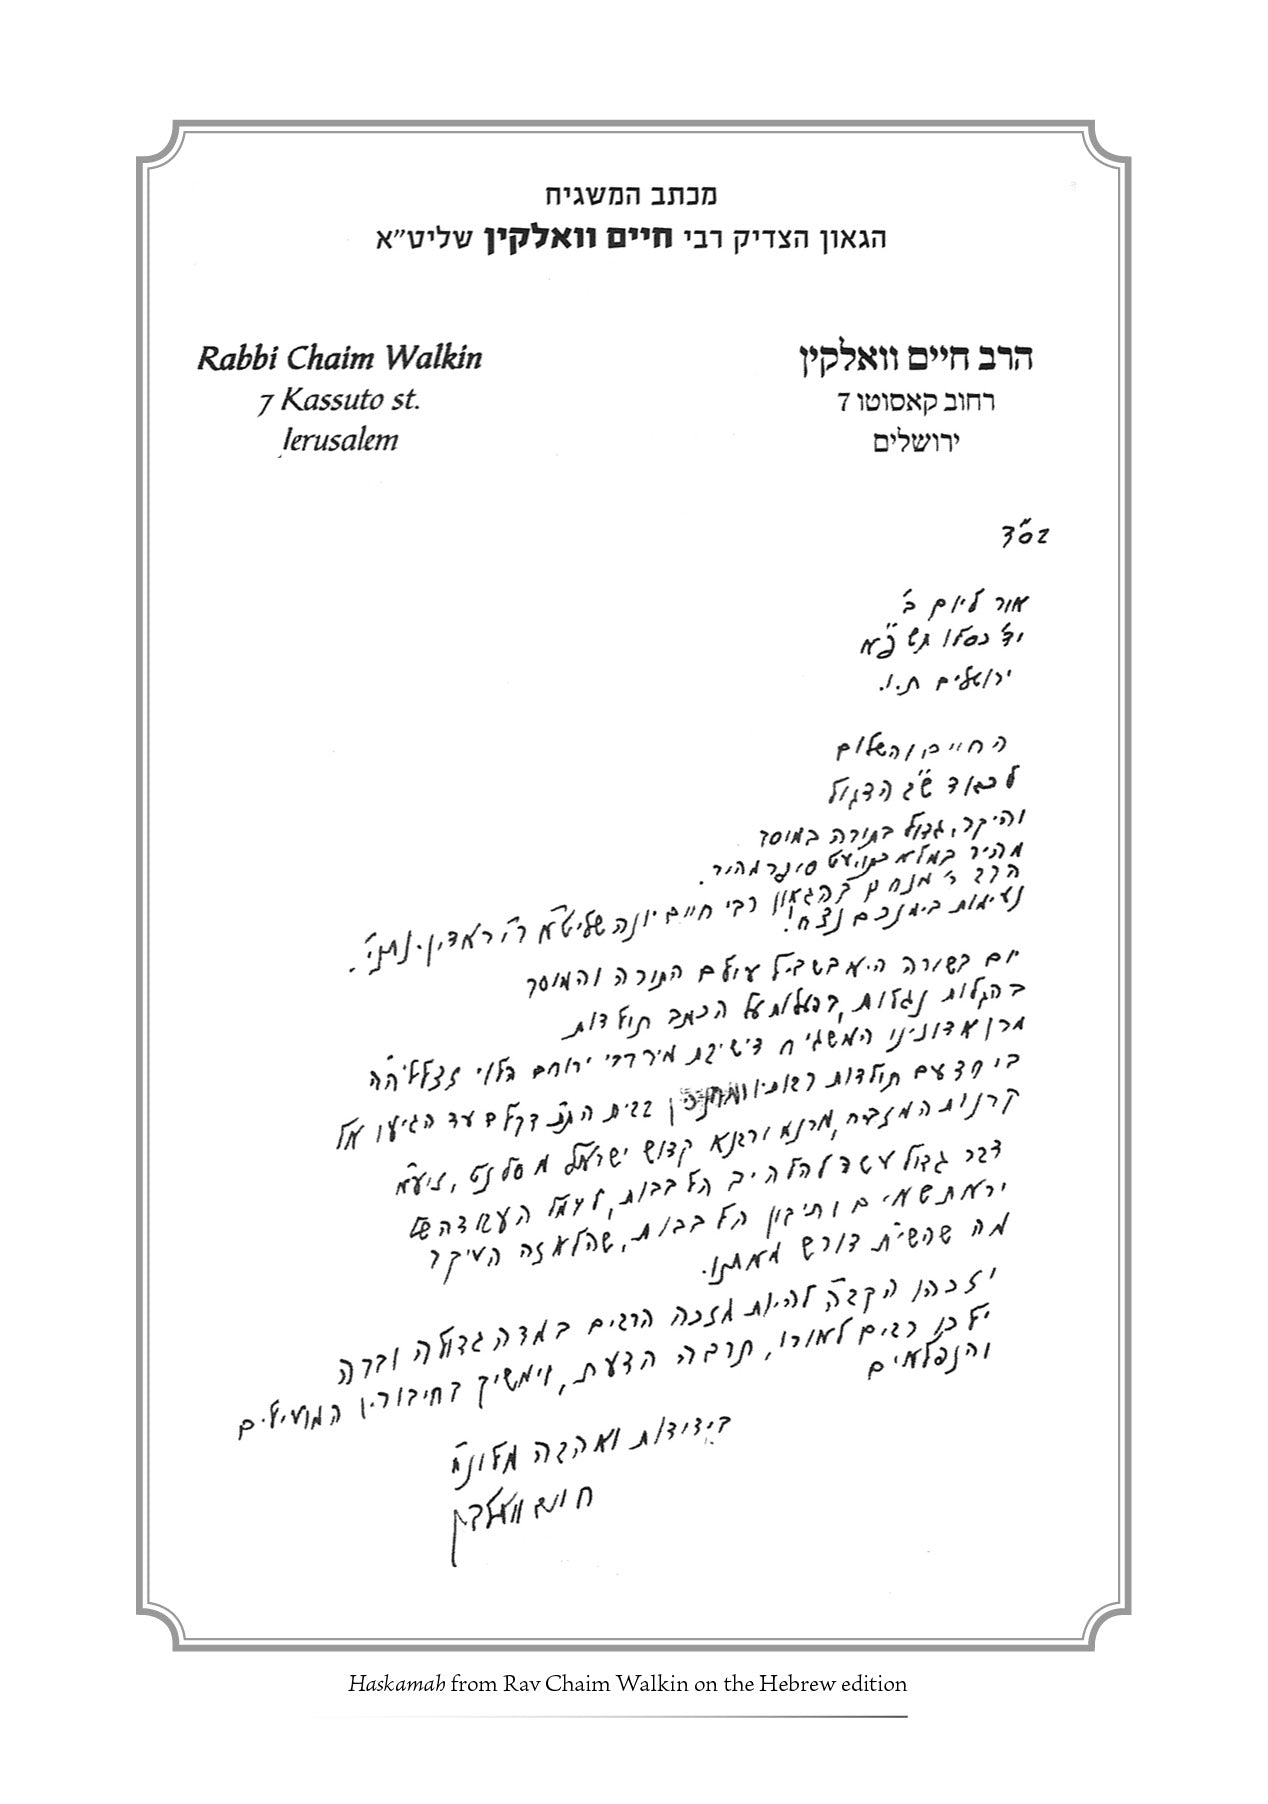 מכתב המשגיח
הגאון הצדיק רבי חיים וואלקין שליט״א
Rabbi Chaim Walkin
7 Kassuto st.
Jerusalem
הרב חיים וואלקין
רחוב קאסוטו 7
ירושלים
בס"ד
אור ליום ב'
יד' כסלו תש"פא
ירושלים ת.ו.
החיים והשלום
לכבוד ש"ב הדגול
והיקר, גדול בתורה במוסר
מהיר במלאכתו, עט סופר מהיר.
הרב ר' מנחם בהגאון רבי חיים יונה שליט"א ר"י ראדין-נתני'.
נעימות בימינכם נצח!
יום בשורה היא בשביל עולם התורה והמוסר
בהקלות נגלות, בהעלות על הכתב תולדות
מרן אדונינו המשגיח דישיבת מיר רבי ירוחם הלוי זצללה"ה
תולדות רבותיו בבית הת"ת דקלם עד הגיעו אל
קרנות המזבח, מרנא ורבנא קדוש ישראל מסלנט, זיע"א
דבר גדול עשה להלהיב הלבבות, לעמל העבודה של
יראת שמים ותיקון הלבבות, שהלא זה העיקר
מה שהשי"ת דורש מאתנו.
יזכהו הקב"ה להיות מזכה הרבים במדה גדולה וברה
ילכו רבים לאורו, תרבה הדעת, וימשיך בחיבוריו המועילים
והנפלאים
בידידות ואהבה מלונ"ח
חיים וואלקין
Haskamah from Rav Chaim Walkin on the Hebrew edition